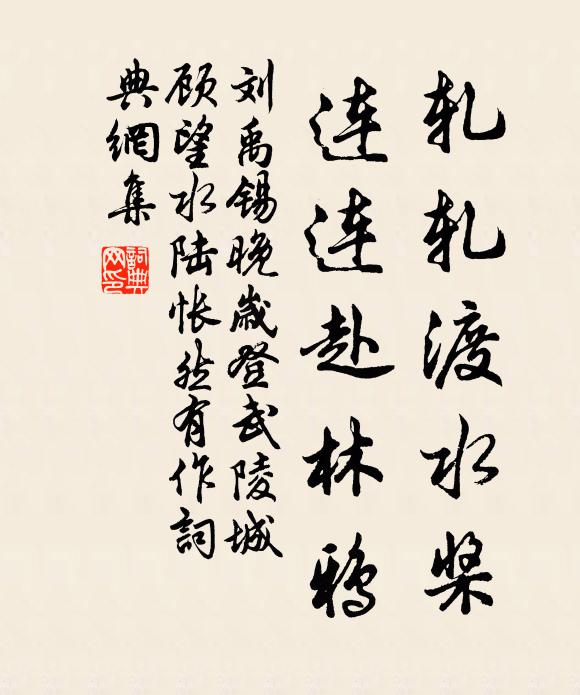 轧轧渡水桨
连连赴林鸦
刘禹锡晚岁登武陵城
顾望水陆怅然有作詞
典網集
詞典網印